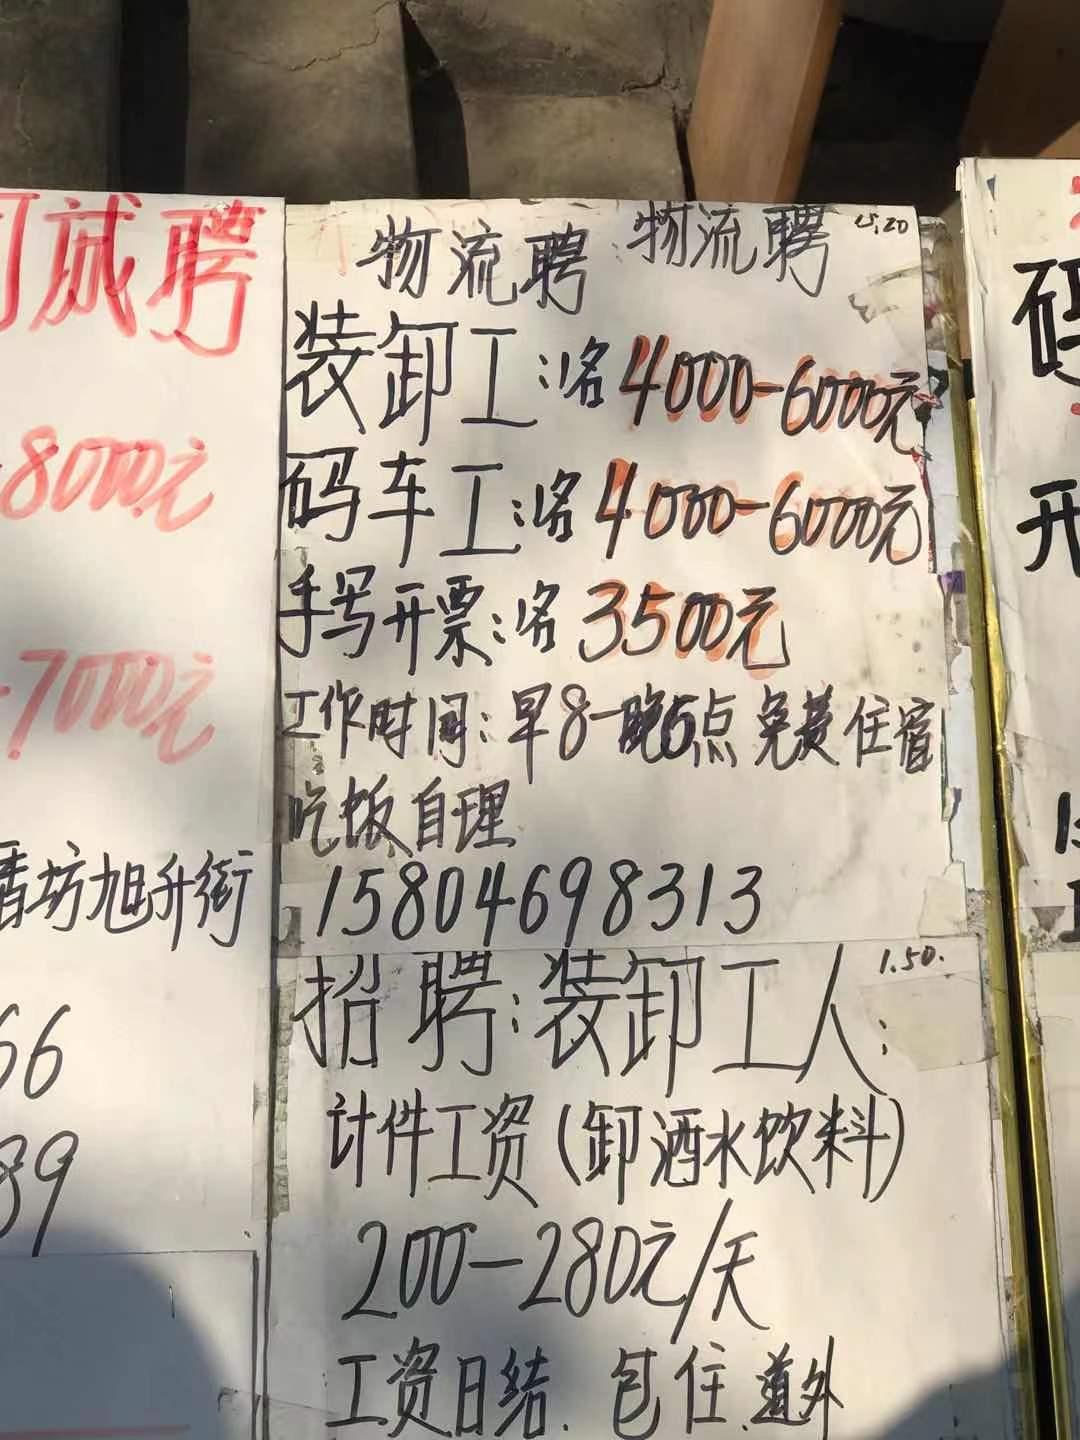 聘
8000元
7000元
香坊旭升街
66
89
物流聘 物流聘
装卸工:1名4000-6000元
码车工:1名4000-6000元
手写开票:1名3500元
工作时间:早8-晚5点免费住宿
吃饭自理
15804698313
招聘:装卸工人: 1.50.
计件工资(卸酒水饮料)
200-280元/天
工资日结.包住.道外
码
开